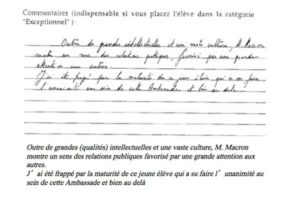 Commentaires (indispensable si vous placez l'élève dans la catégorie
"Exceptionnel") :
Outre de grandes intellectuelles et une vaste culture, M. Macron
montre un sens des relations publiques, favorisé par une grande
attention aux autres.
J'ai été frappé par la maturité de ce jeune élève qui a su faire
l'unanimité au sein de cette Ambassade et bien au delà.
Outre de grandes (qualités) intellectuelles et une vaste culture, M. Macron
montre un sens des relations publiques favorisé par une grande attention aux
autres.
J' ai été frappé par la maturité de ce jeune élève qui a su faire l'unanimité au
sein de cette Ambassade et bien au delà